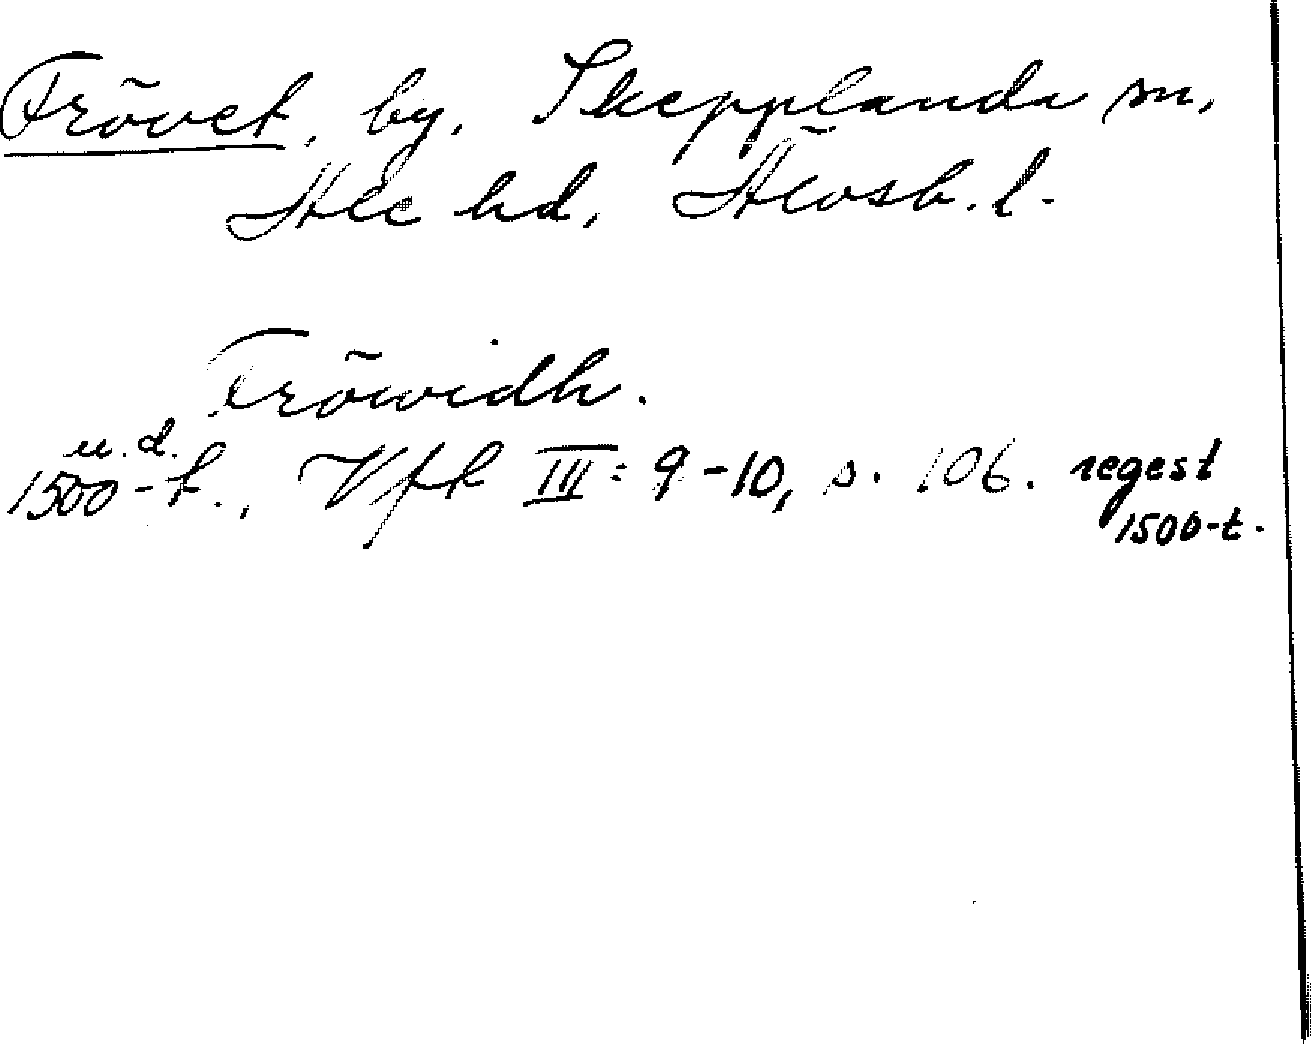 Frövet, by, Skepplanda sn,
Ale hd, Älvsb. l.
Fröwidh.
u.d.
1500-t., Vfk III: 9-10, s. 106. regest
1500-t.